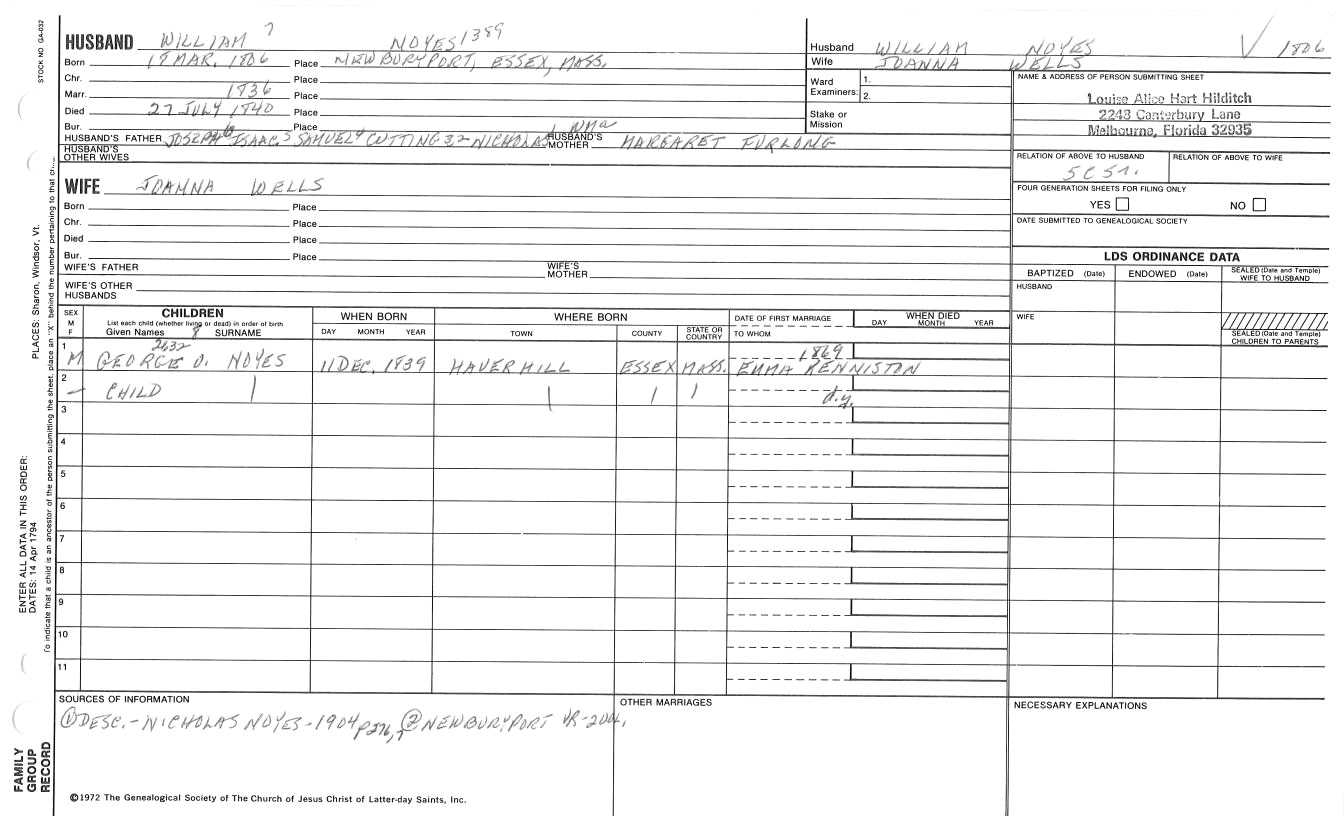 STOCK NO GA-032
HUSBAND WILLIAM 7 NOYES 1389
Born 18 MAR. 1806 Place NEWBURYPORT, ESSEX, MASS.
Chr. Place
Marr. 1836 Place
Died 27 JULY 1840 Place
Bur. Place
HUSBAND'S FATHER JOSEPH 6 ISAAC 5 SAMUEL 4 CUTTING 3, 2 NICHOLAS 1 HUSBAND'S MOTHER MARGARET FURLONG
HUSBAND'S OTHER WIVES
Husband WILLIAM NOYES √ 1806
Wife JOANNA WELLS
Ward Examiners: 1.
2.
Stake or Mission
NAME & ADDRESS OF PERSON SUBMITTING SHEET
Louise Alice Hart Hilditch
2248 Canterbury Lane
Melbourne, Florida 32935
RELATION OF ABOVE TO HUSBAND RELATION OF ABOVE TO WIFE
FOUR GENERATION SHEETS FOR FILING ONLY
YES NO
DATE SUBMITTED TO GENEALOGICAL SOCIETY
WIFE JOANNA WELLS
Born Place
Chr. Place
Died Place
Bur. Place
WIFE'S FATHER WIFE'S MOTHER
WIFE'S OTHER HUSBANDS
LDS ORDINANCE DATA
BAPTIZED (Date) ENDOWED (Date) SEALED (Date and Temple) WIFE TO HUSBAND
HUSBAND
WIFE
SEALED (Date and Temple) CHILDREN TO PARENTS
SEX M F
CHILDREN
List each child (whether living or dead) in order of birth
Given Names 8 SURNAME
WHEN BORN
DAY MONTH YEAR
WHERE BORN
TOWN COUNTY STATE OR COUNTRY
DATE OF FIRST MARRIAGE
TO WHOM
WHEN DIED
DAY MONTH YEAR
1 2632 1869
M GEORGE O. NOYES 11 DEC. 1839 HAVERHILL ESSEX MASS. EMMA KENNISTON
2
— CHILD d.y.
3
4
5
6
7
8
9
10
11
SOURCES OF INFORMATION
① DESC. - NICHOLAS NOYES - 1904 p 276, ② NEWBURYPORT VR-
OTHER MARRIAGES
NECESSARY EXPLANATIONS
©1972 The Genealogical Society of The Church of Jesus Christ of Latter-day Saints, Inc.
FAMILY GROUP RECORD
ENTER ALL DATA IN THIS ORDER:
DATES: 14 Apr 1794
PLACES: Sharon, Windsor, Vt.
To indicate that a child is an ancestor of the person submitting the sheet, place an "X" behind the number pertaining to that